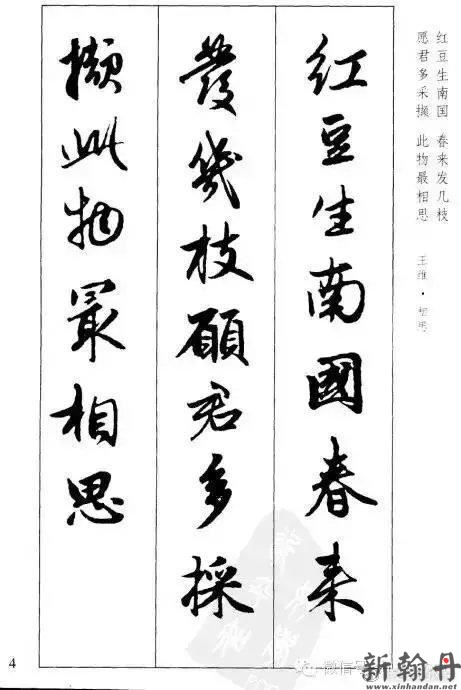 红豆生南国 春来发几枝
愿君多采撷 此物最相思 王维·相思
紅豆生南國春来
發幾枝願君多採
擷此物最相思
4
微信号
新翰丹
www.xinhandan.net